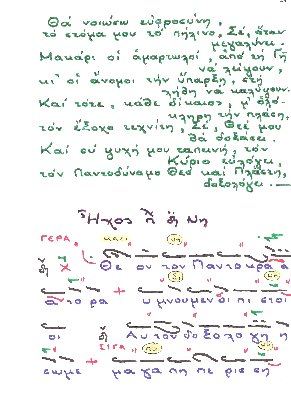 Θά νοιώσω εὐφροσύνη,
τό στόμα μου τό πήλινο, Σέ, ὅταν
μεγαλύνει.
Μακάρι οἱ ἁμαρτωλοί, ἀπό τή Γῆ
νά λείψουν,
κι' οἱ ἄνομοι τήν ὕπαρξη, στή
λήθη νά καλύψουν.
Καί τότε, κάθε δίκαιος, μ' ὁλό-
κληρη τήν πλάση,
τόν ἔξοχο τεχνίτη, Σέ, Θεέ μου
θά δοξάσει.
Καί σύ ψυχή μου ταπεινή, τόν
Κύριο εὐλόγει,
τόν Παντοδύναμο Θεό καί Πλάστη,
δοξολόγει.
Ἦχος π̈ ἃ Νη
ΓΕΡΑ.
Θε ον τον Παντοκρα α
α το ρα υ μνουμεν οι πι στοι
οι Αυ τον δο ξολο γη η
ΣΙΓΑ
σωμε μα γα πη πε ρισ ση